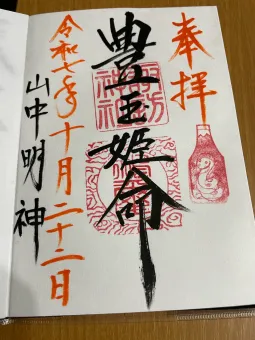 奉拝
豊玉姫命
山中明神
令和七年十月二十二日